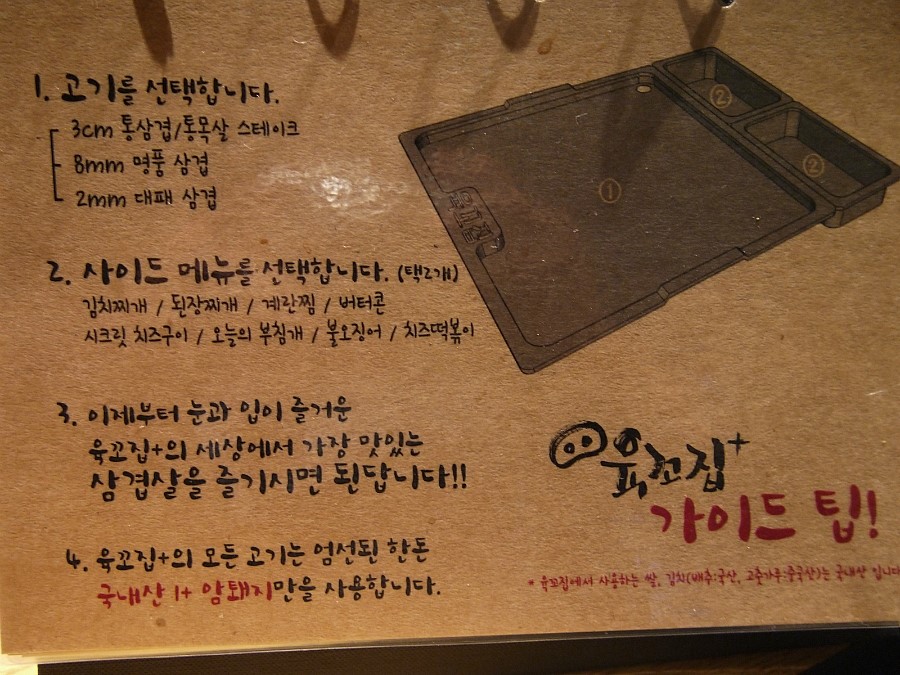 1. 고기를 선택합니다.
3cm 통삼겹/통목살 스테이크
8mm 명품 삼겹
2mm 대패 삼겹
2. 사이드 메뉴를 선택합니다. (택2개)
김치찌개 / 된장찌개 / 계란찜 / 버터콘
시크릿 치즈구이 / 오늘의 부침개 / 불오징어 / 치즈떡볶이
3. 이제부터 눈과 입이 즐거운
육꼬집+의 세상에서 가장 맛있는
삼겹살을 즐기시면 된답니다!!
4. 육꼬집+의 모든 고기는 엄선된 한돈
국내산 1+ 암퇘지만을 사용합니다.
②
②
①
육꼬집
육꼬집+
가이드 팁!
* 육꼬집에서 사용하는 쌀, 김치(배추:국산, 고춧가루:중국산)는 국내산 입니다